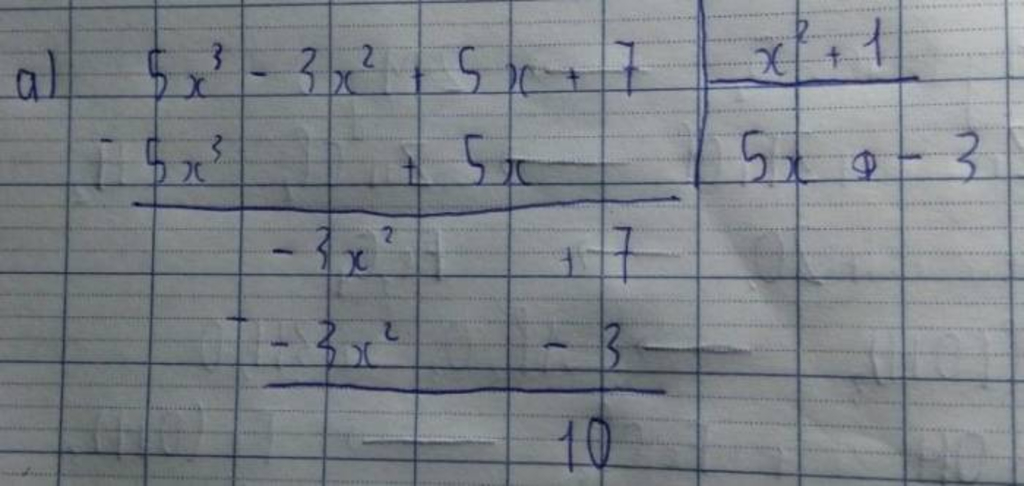 a) 5x³ - 3x² + 5x + 7 | x² + 1
- 5x³ + 5x | 5x - 3
- 3x² + 7
- - 3x² - 3
10